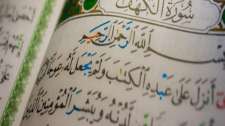 سُورَةُ الْكَهْفِ
بِسْمِ اللَّهِ الرَّحْمَٰنِ الرَّحِيمِ
أَنْزَلَ عَلَىٰ عَبْدِهِ الْكِتَابَ وَلَمْ يَجْعَلْ لَهُ عِوَجًا
لَدُنْهُ وَيُبَشِّرَ الْمُؤْمِنِينَ